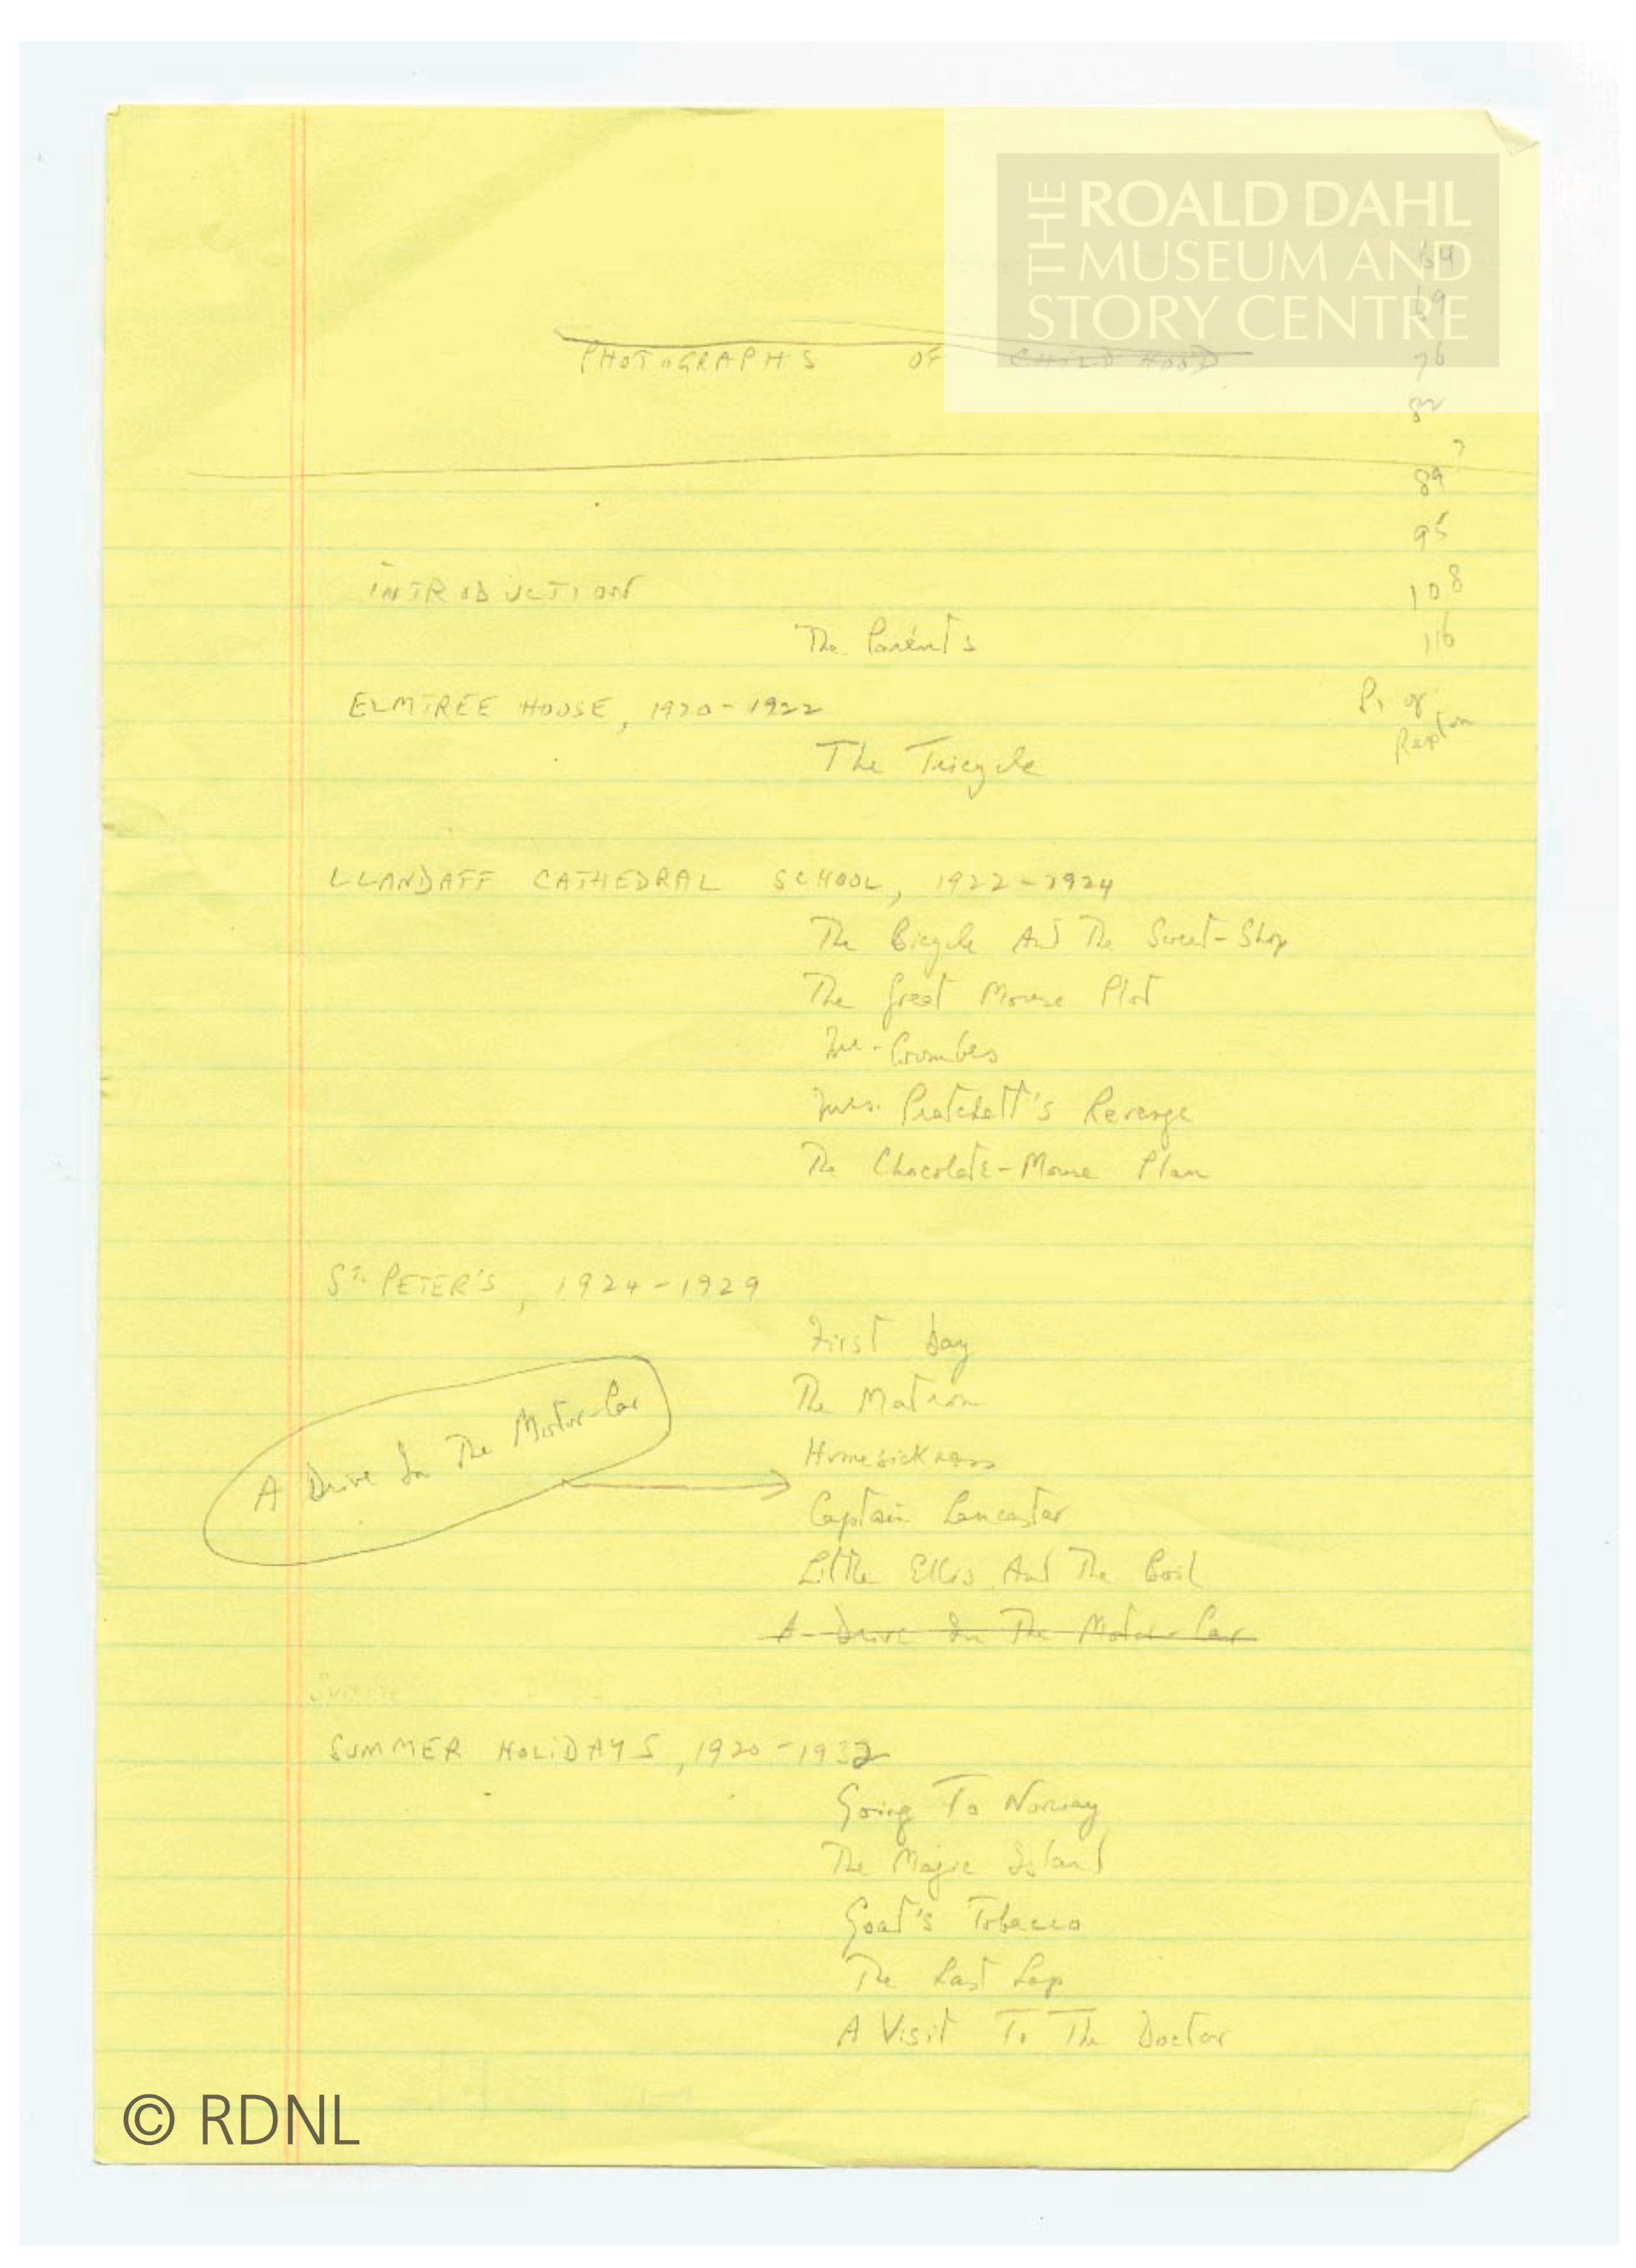 THE ROALD DAHL
MUSEUM AND
STORY CENTRE
64
69
PHOTOGRAPHS OF CHILDHOOD
76
82
?
89
95
INTRODUCTION
108
The Parents
116
ELMTREE HOUSE, 1920-1922
P. of
Repton
The Tricycle
LLANDAFF CATHEDRAL SCHOOL, 1922-1924
The Bicycle And The Sweet-Shop
The Great Mouse Plot
Mr. Coombes
Mrs. Pratchett's Revenge
The Chocolate-Mouse Plan
ST. PETER'S, 1924-1929
First Day
The Matron
A Drive In The Motor-Car
Homesickness
Captain Lancaster
Little Ellis And The Boil
A Drive In The Motor-Car
SUMMER HOLIDAYS, 1920-1932
Going To Norway
The Magic Island
Goat's Tobacco
The Last Lap
A Visit To The Doctor
© RDNL